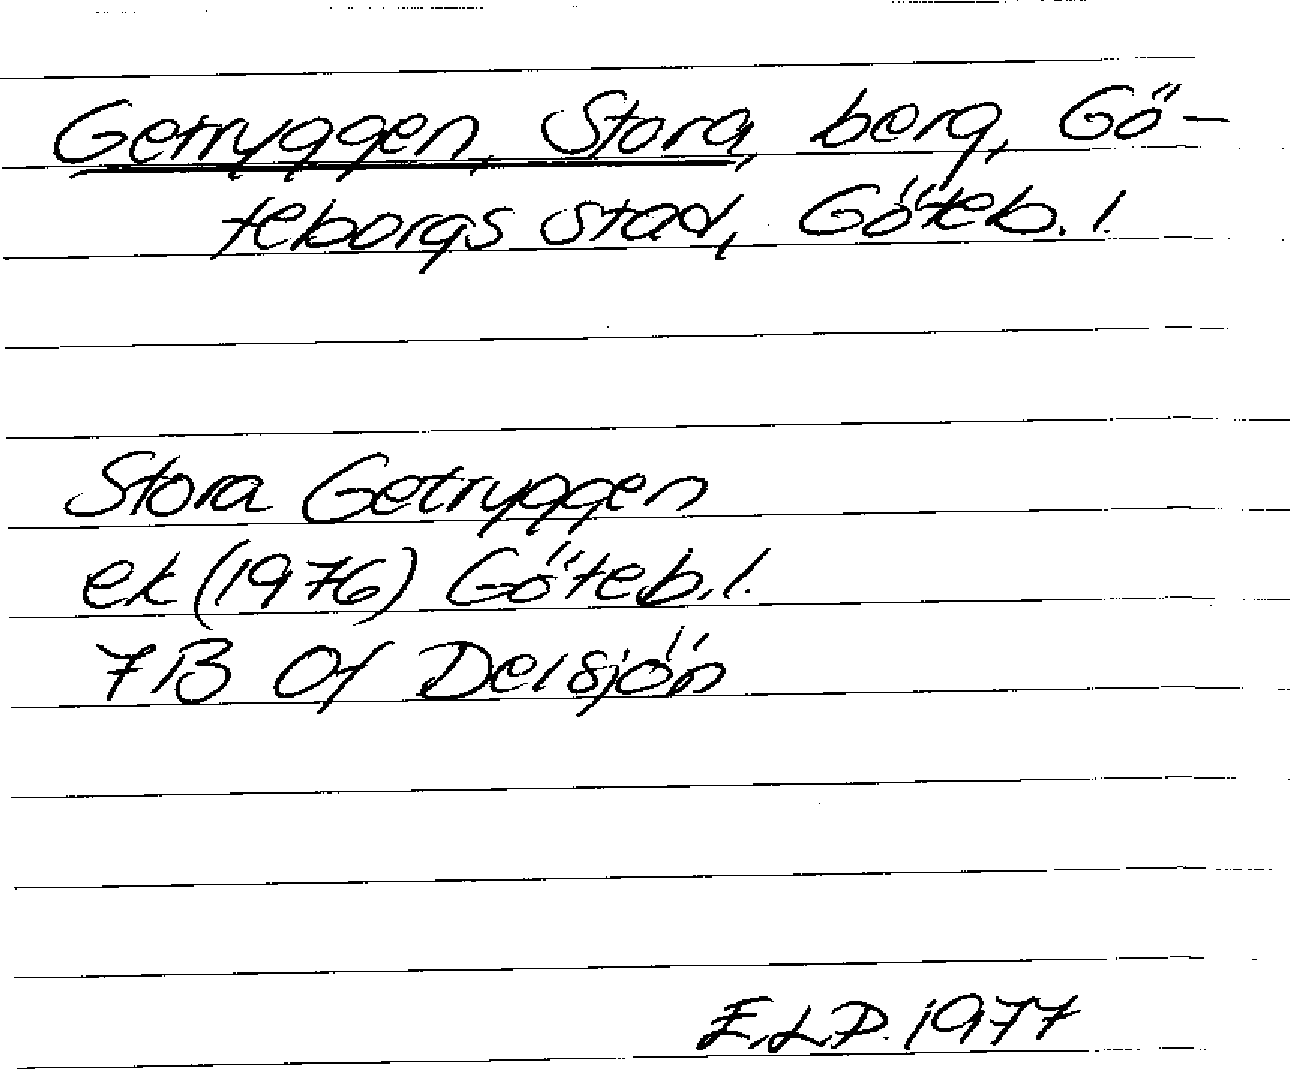 Getryggen, Stora, berg, Gö-
teborgs stad, Göteb. l.
Stora Getryggen
ek (1976) Göteb. l.
7B 0f Delsjön
E.L.P. 1977